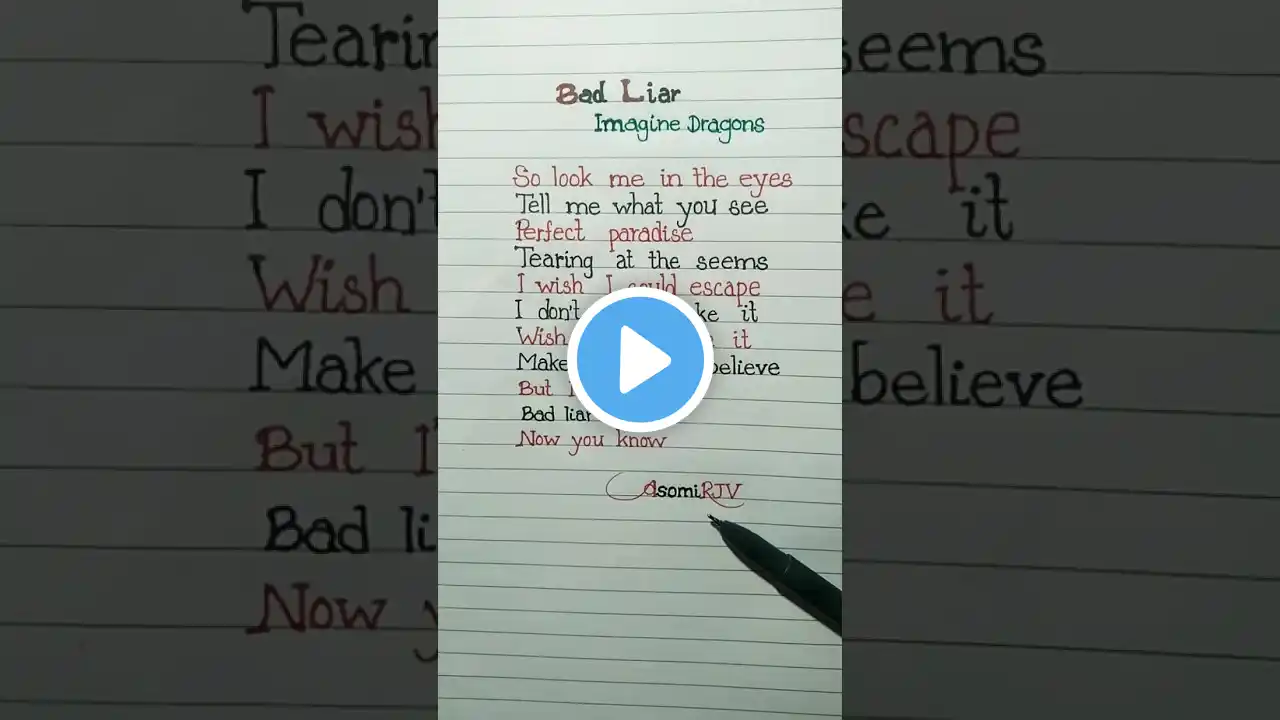 Bad Liar
Imagine Dragons
So look me in the eyes
Tell me what you see
Perfect paradise
Tearing at the seems
I wish I could escape
I don't ke it
Wish it
Make believe
But I
Bad liar
Now you know
AsomiRJV
Tearin
seems
I wish
scape
I don't
ke it
Wish
e it
Make
believe
But I'
Bad li
Now y